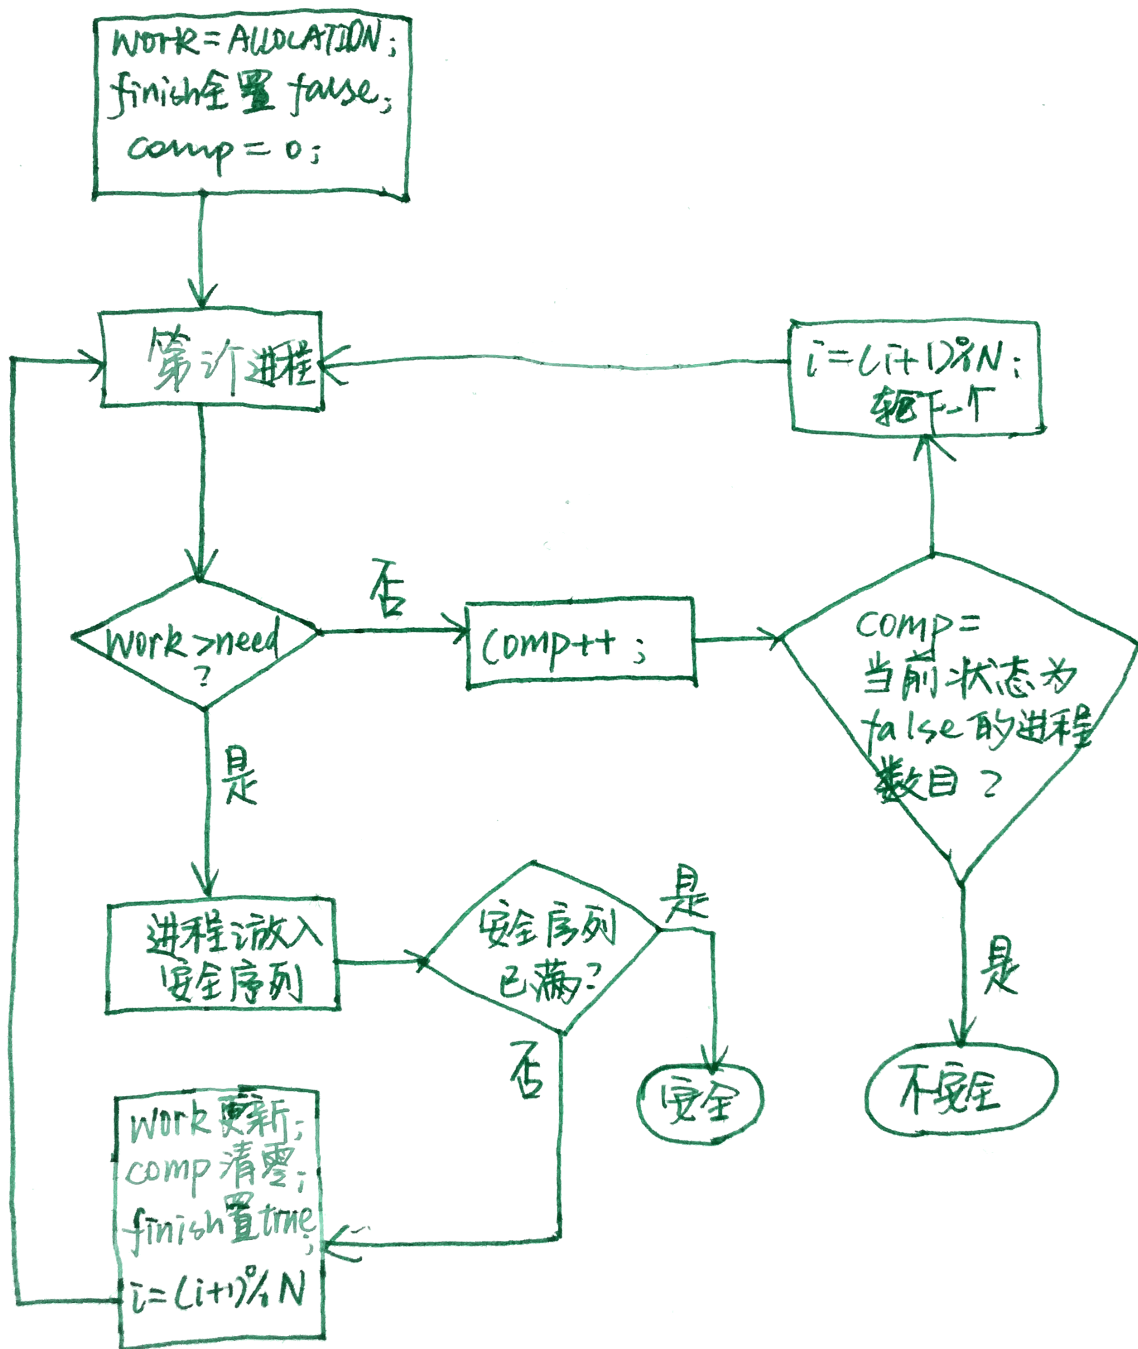 work=ALLOCATION;
finish全置false;
comp=0;
第i个进程
i=(i+1)%N;
轮下一个
work>need
?
否
comp++;
comp=
当前状态为
false的进程
数目?
是
进程i放入
安全序列
安全序列
已满?
是
是
否
安全
不安全
work更新;
comp清零;
finish置true;
i=(i+1)%N